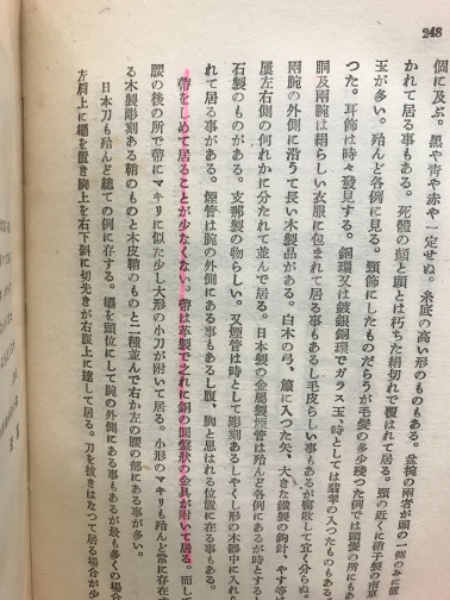 248
個に及ぶ。黒や青や赤や一定せぬ。糸底の高い形のものもある。盆椀の兩者が頭の一側のみに置
かれて居る事もある。死體の顔と頭とは朽ちた絹切れで覆はれて居る。頸の近くに硝子製の南京
玉が多い。殆んど各例に見る。頸飾にしたものだらうが毛髪の多少殘つた例では頭髪の所にもあ
つた。耳飾は時々發見する。銅環又は鍍銀銅環でガラス玉、時としては翡翠の入つたものもある。
胴及兩腕は絹らしい衣服に包まれて居る事もあるし毛皮らしい事もあるが腐敗して宜く分らぬ。
兩腕の外側に沿うて長い木製品がある。白木の弓、箙に入つた矢、大きな鐵製の鉤針、やす等
屢左右側の何れかに分たれて並んで居る。日本製の金屬製煙管は殆んど各例にあるが時とする
石製のものがある。支那製の物らしい。又煙管は時として彫刻あるしやくし形の木器中に入れら
れて居る事がある。煙管は腕の外側にある事もあるし腹、胸と思はれる位置に在る事もある。
帶をしめて居ることが少なくない。帶は革製で之れに銅の圓盤狀の金具が附いて居る。而して
腰の後の所で帶にマキリに似た少し大形の小刀が附いて居る。小形のマキリも殆んど常に存在
る木製彫刻ある鞘のものと木皮鞘のものと二種並んで右か左の腰の部にある事が多い。
日本刀も殆んど總ての例に存する。欛を頭位にして腕の外側にある事もあるが最も多くの場合
左肩上に欛を置き胸上を右下斜に切先きが右腹上に達して居る。刀を拔きはなつて居る場合が少